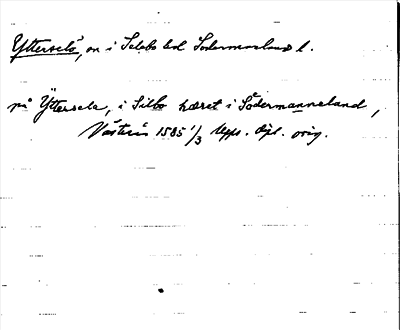 Ytterselö, ön i Selebo hd Södermanland l.
på Yttersela, i Silbo hæret i Södermanneland,
Västerås 1585 1/3 Upps. dipl. orig.